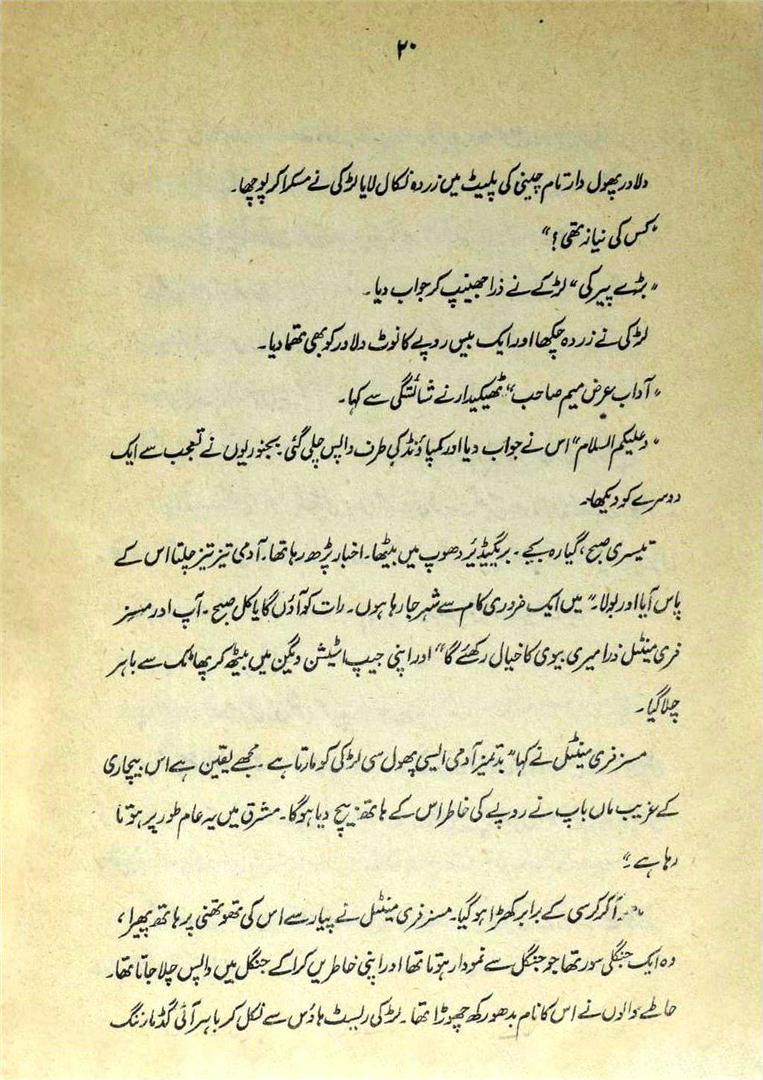 ۲۰
دلاور پھول دار تام چینی کی پلیٹ میں زردہ نکال لایا لڑکی نے مسکرا کر پوچھا۔
"کس کی نیاز تھی؟"
"بڑے پیر کی" لڑکے نے ذرا جھینپ کر جواب دیا۔
لڑکی نے زردہ چکھا اور ایک بیس روپے کا نوٹ دلاور کو بھی تھما دیا۔
"آداب عرض میم صاحب" ٹھیکیدار نے شائستگی سے کہا۔
"وعلیکم السلام" اس نے جواب دیا اور کمپاؤنڈ کی طرف واپس چلی گئی۔ بجنوریوں نے تعجب سے ایک
دوسرے کو دیکھا۔
تیسری صبح، گیارہ بجے۔ بریگیڈیئر دھوپ میں بیٹھا۔ اخبار پڑھ رہا تھا۔ آدمی تیز تیز چلتا اس کے
پاس آیا اور بولا۔ "میں ایک ضروری کام سے شہر جا رہا ہوں۔ رات کو آؤں گا یا کل صبح۔ آپ اور مسز
فری مینٹل ذرا میری بیوی کا خیال رکھئے گا" اور اپنی جیپ اسٹیشن ویگن میں بیٹھ کر پھاٹک سے باہر
چلا گیا۔
مسز فری مینٹل نے کہا "بدتمیز آدمی ایسی پھول سی لڑکی کو مارتا ہے۔ مجھے یقین ہے اس بیچاری
کے غریب ماں باپ نے روپے کی خاطر اس کے ہاتھ بیچ دیا ہوگا۔ مشرق میں یہ عام طور پر ہوتا
رہا ہے۔"
آکر کرسی کے برابر کھڑا ہو گیا۔ مسز فری مینٹل نے پیار سے اس کی تھوتھنی پر ہاتھ پھیرا،
وہ ایک جنگلی سور تھا جو جنگل سے نمودار ہوتا تھا اور اپنی خاطریں کرا کے جنگل میں واپس چلا جاتا تھا۔
حاطے والوں نے اس کا نام بدھو رکھ چھوڑا تھا۔ لڑکی ریسٹ ہاؤس سے نکل کر باہر آئی گڈ مارننگ